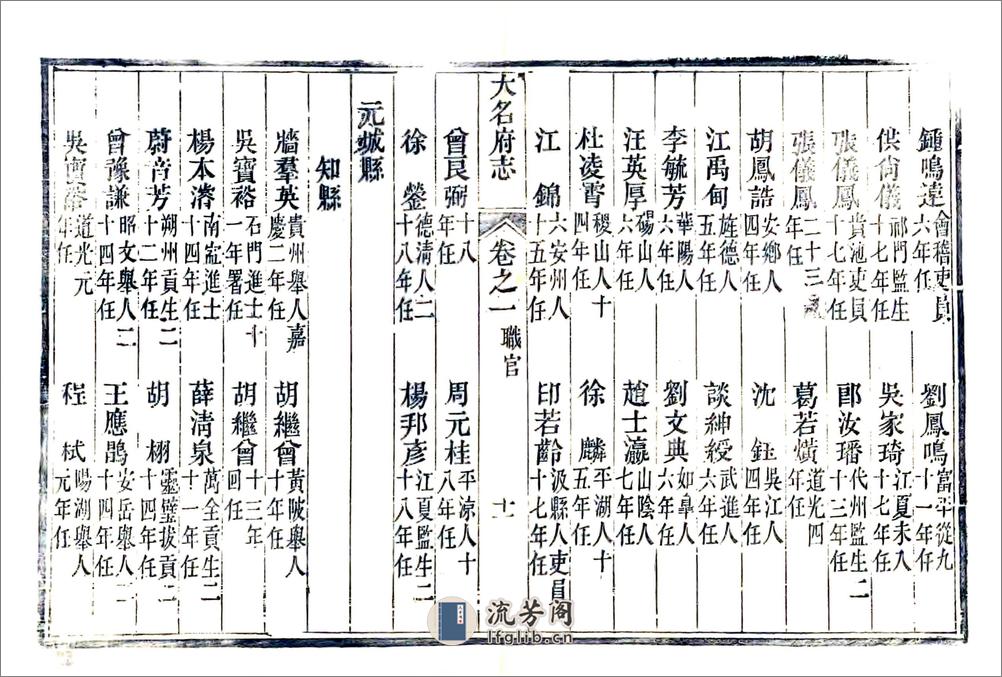 鍾鳴達會稽吏員六年任　劉鳳鳴富平從九十一年任
供尙儀祁門監生十七年任　吳家琦江夏未入十七年任
張儀鳳貴池吏員十七年任　郎汝璠代州監生二十三年任
張儀鳳二十三年任　葛若熿道光四年任
胡鳳誥安鄉人四年任　沈鈺吳江人四年任
江禹甸旌德人五年任　談紳綬武進人六年任
李毓芳華陽人六年任　劉文典如皐人六年任
汪英厚碭山人六年任　趙士瀛山陰人七年任
杜凌霄稷山人十四年任　徐麟平湖人十五年任
江錦六安州人十五年任　印若齡汲縣人吏員十七年任
大名府志　卷之一　職官　十一
曾艮弼十八年任　周元桂平涼人十八年任
徐鎣德淸人二十八年任　楊邦彥江夏監生二十八年任
元城縣
知縣
牆羣英貴州舉人嘉慶二年任　胡繼曾黃陂舉人十年任
吳寶裕石門進士十一年署任　胡繼曾十三年回任
楊本濬南甯進士十四年任　薛淸泉萬全貢生二十一年任
蔚音芳朔州貢生二十二年任　胡栩靈璧拔貢二十四年任
曾豫謙昭文舉人二十四年任　王應鵾安岳舉人二十四年任
吳寶裕道光元年任　程栻陽湖舉人元年任
流芳阁
lfglib.cn